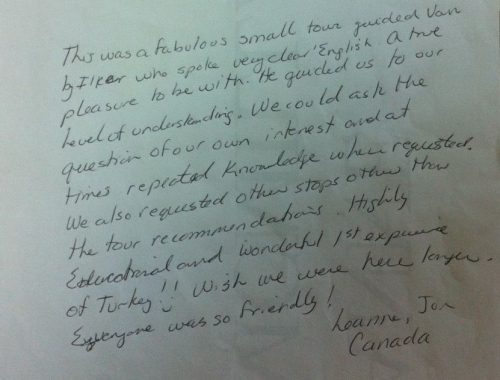 This was a fabulous small tour guided van
by Ilker who spoke very clear English. A true
pleasure to be with. He guided us to our
level of understanding. We could ask the
question of our own interest and at
times repeated knowledge when requested.
We also requested other stops other than
the tour recommendations. Highly
Educational and wonderful 1st experience
of Turkey!! Wish we were here longer.
Everyone was so friendly!
Leanne, Jon
Canada